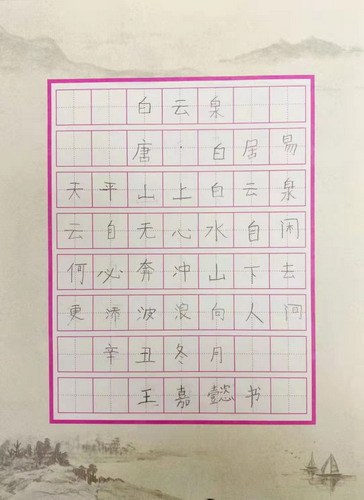 白云泉
唐·白居易
天平山上白云泉
云自无心水自闲
何必奔冲山下去
更添波浪向人间
辛丑冬月
王嘉懿书